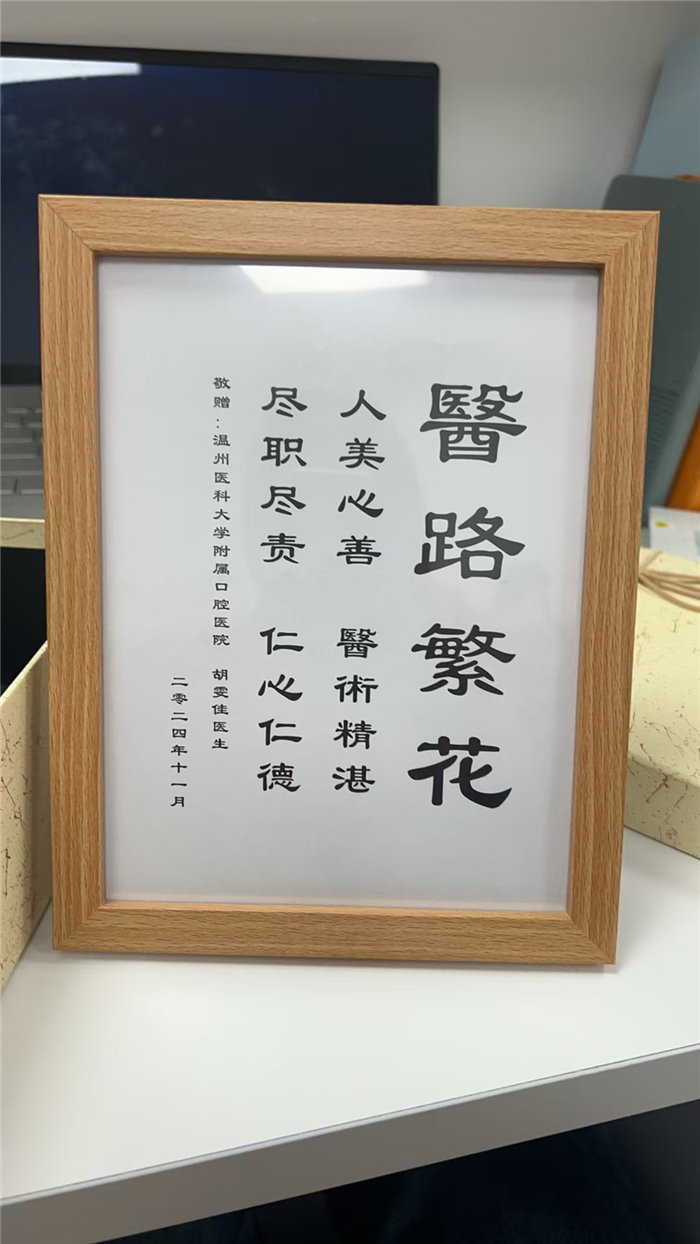 醫路繁花
人美心善 醫術精湛
尽职尽责 仁心仁德
敬赠：温州医科大学附属口腔医院 胡雯佳医生
二零二四年十一月